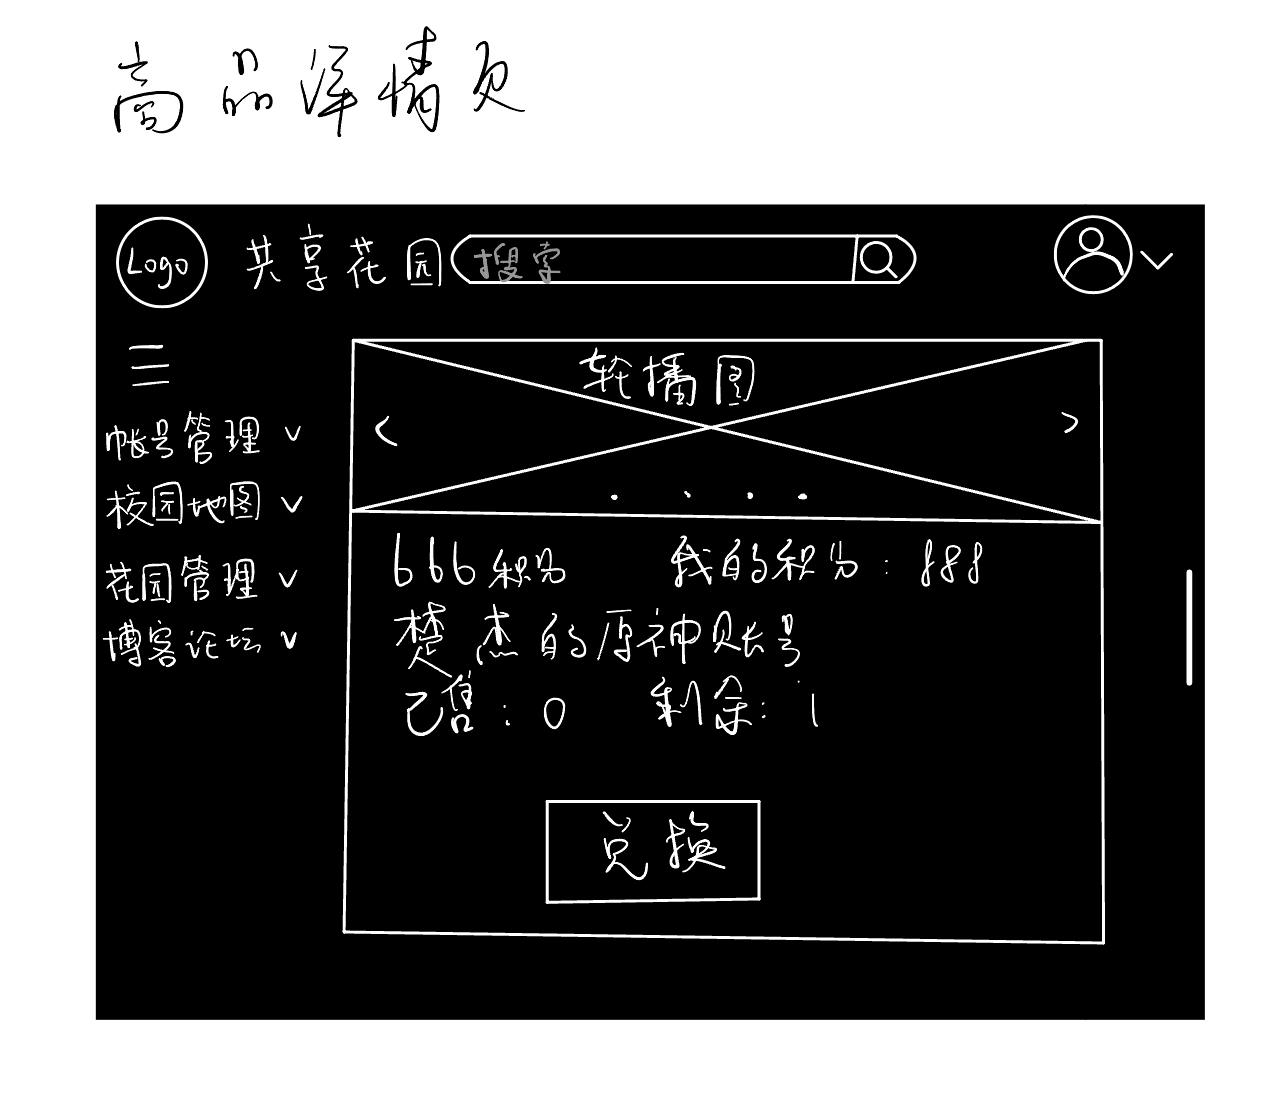 商品详情页
Logo 共享花园 搜索
轮播图
帐号管理
校园地图
花园管理
博客论坛
666积分 我的积分：888
楚杰的原神账号
已售：0 剩余：1
兑换